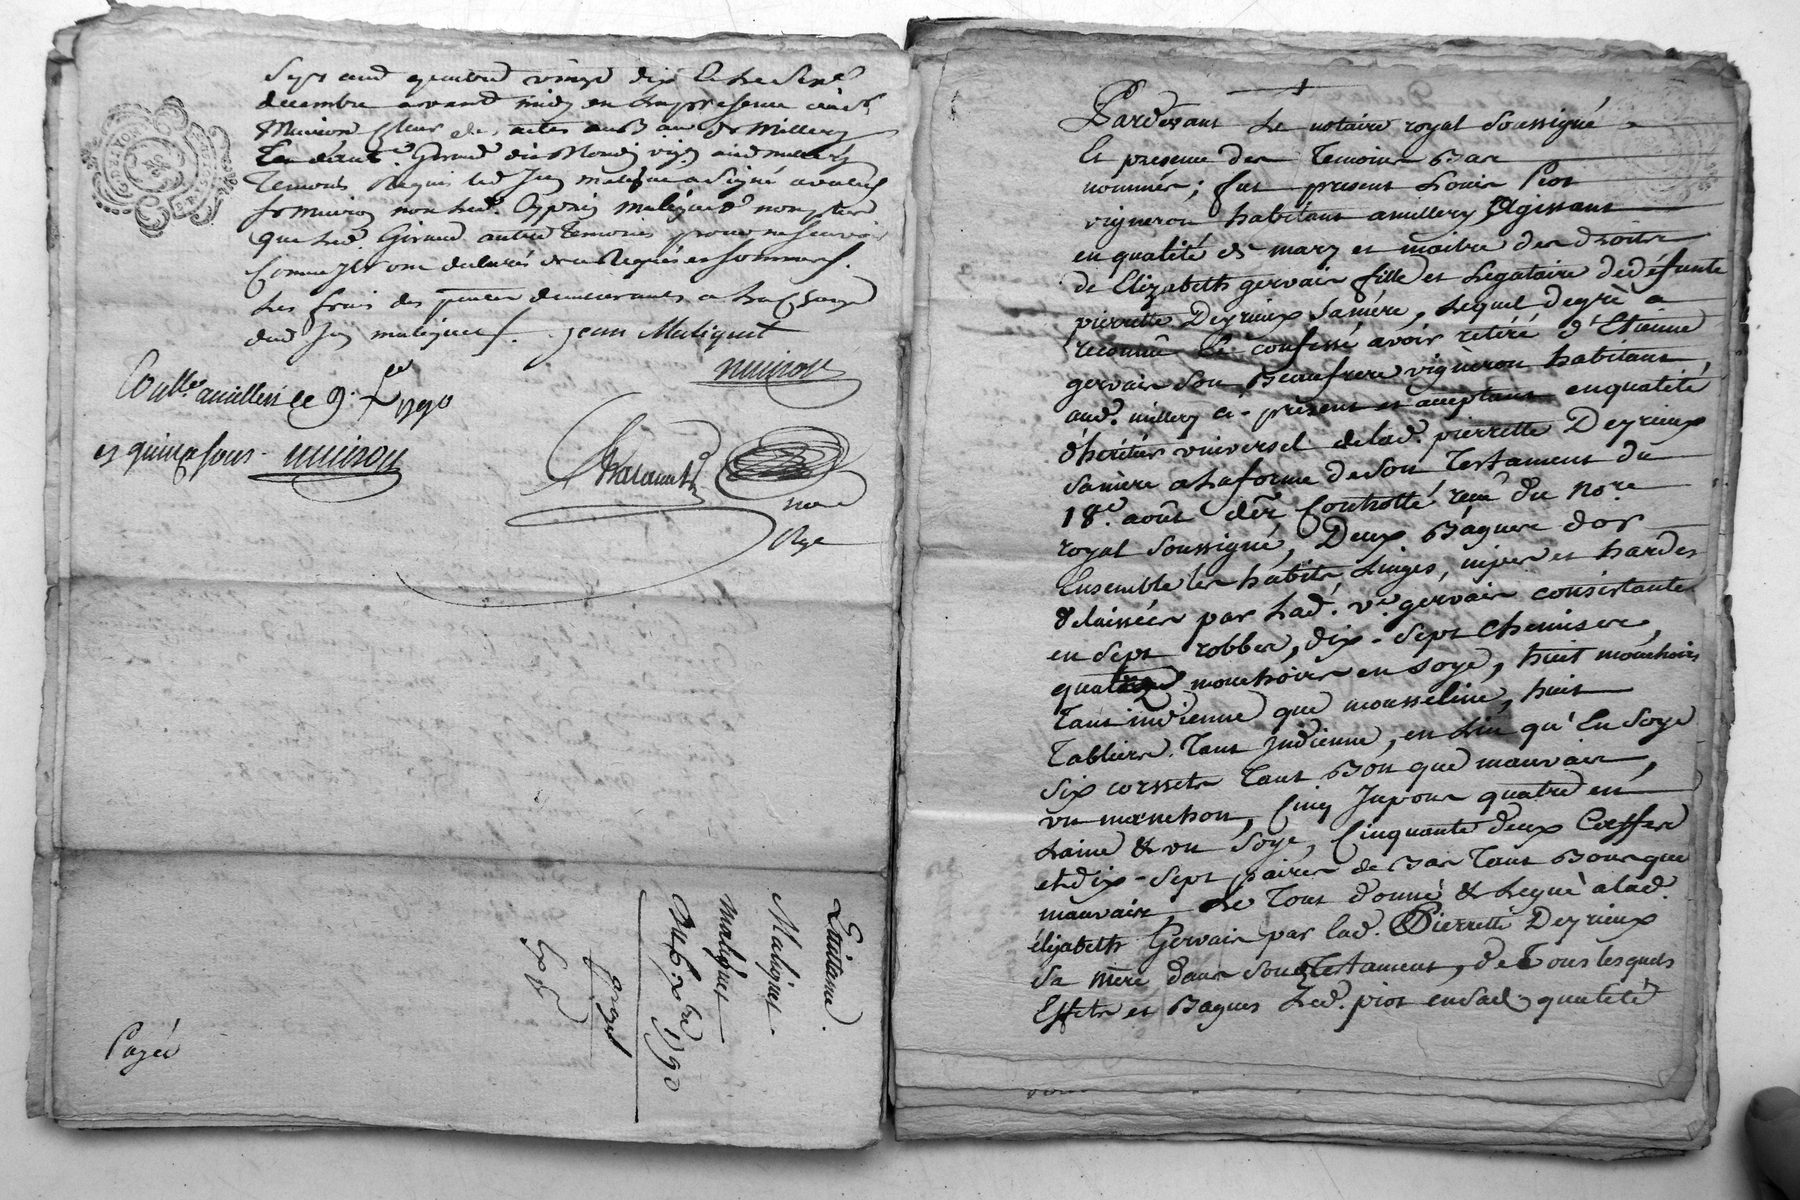 Sept cent quatre vingt dix le
decembre avant midy en la presence
des actes
Giraud
temoins requis led. Jean Maliguet a signé avec led.
non led.
que led. Giraud autre temoins pour ne sçavoir
comme ils ont declarés de ce requis et sommés.
Les frais des presentes demeurants a la charge
dud. Jean Maliguet. Jean Maliguet
Muiron
Conlle. a millery le 9.
et quinze sous - Muiron
nore
Rge
Quittance.
Maliguet
Maliguet
1790
Payée
Pardevant Le notaire royal soussigné
Et presence des Temoins Bas
nommés; fut present Louis Piot
vigneron habitant a millery, Agissant
en qualité de mary et maitre des droits
de Elizabeth gervais fille et Legataire de défunte
pierrette Deyrieux sa mère, Lequel de gré a
reconnu Et confessé avoir retiré d'Etienne
gervais son Beaufrere vigneron habitant
aud. millery ci-present et acceptant en qualité
d'héritier vniversel de lad. pierrette Deyrieux
sa mère a la forme de son Testament du
18e. août der. Controllé, reçu du Nore
royal soussigné, Deux Bagues d'or
Ensemble les habits, Linges, nipes et hardes
delaissées par Lad. ve. gervais consistantes
en sept robbes, dix-sept Chemises,
quatre mouchoirs en soye, huit mouchoirs
Tant indienne que mousseline, huit
Tabliers Tant Indienne, en Lin qu'En Soye
six corssets Tant Bon que mauvais,
vn manchon, Cinq Jupons quatre en
Laine & vn Soye, Cinquante deux Coeffes
et dix-sept paires de Bas Tant Bons que
mauvais, Le Tout donné & Legué a lad.
élizabeth Gervais par lad. Pierrette Deyrieux
sa mère dans son Testament, de Tous lesquels
Effets et Bagues Led. piot en sad. qualité